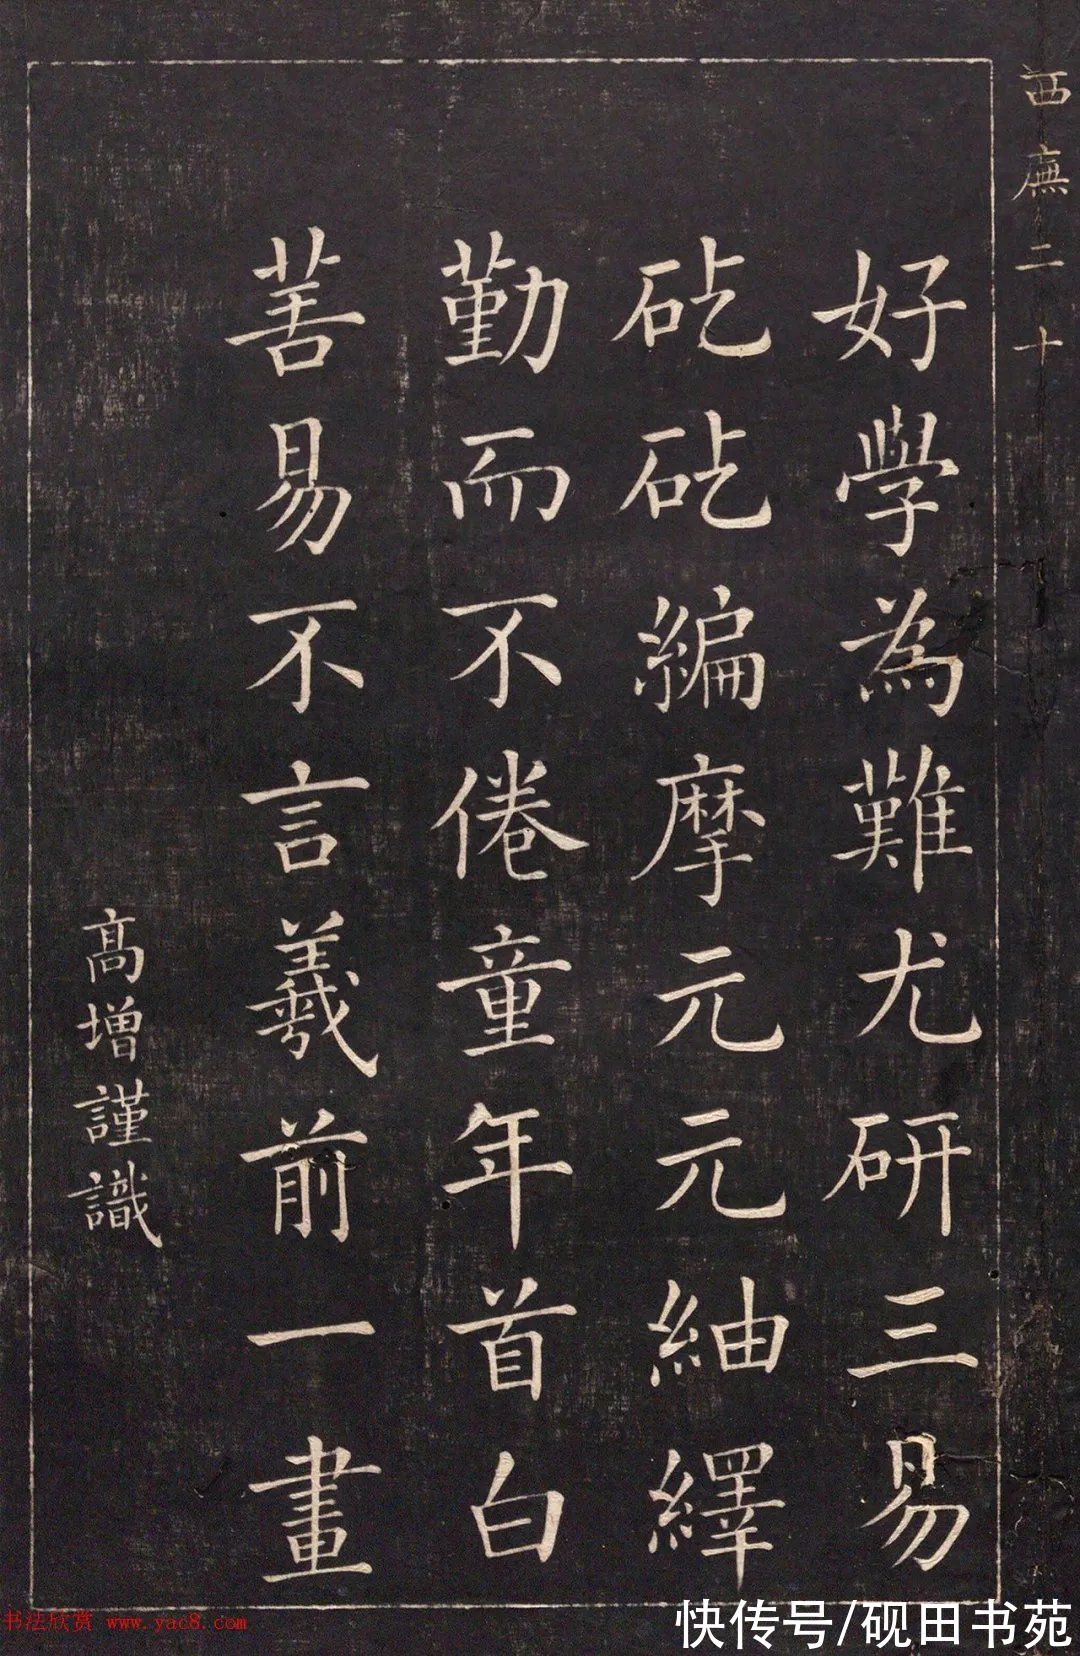 西廡二十
好學為難尤研三易
矻矻編摩元元紬繹
勤而不倦童年首白
善易不言羲前一畫
高增謹識
书法欣赏 www.yac8.com
快传号/砚田书苑